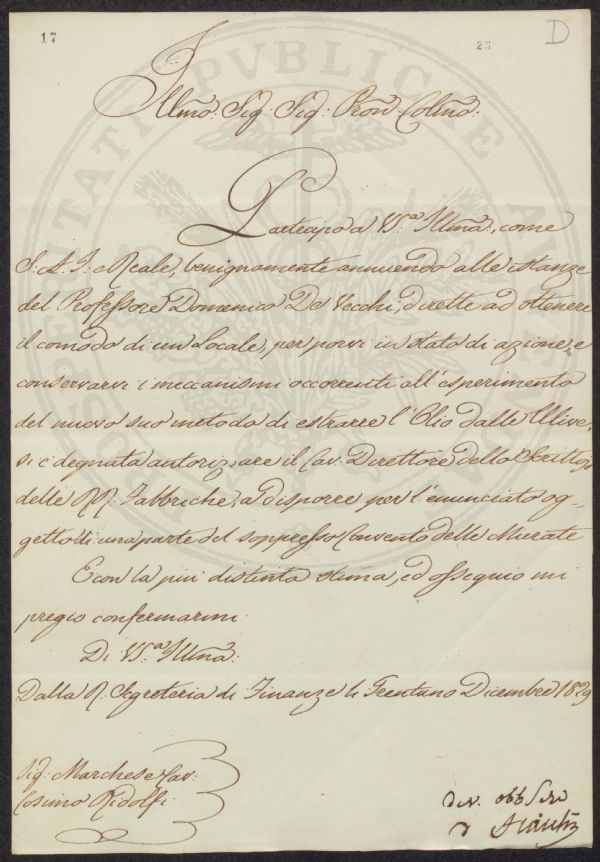 17
23
D
PROSPERITATI PVBLICAE AVGENDAE
Illmo: Sig: Sig: Pron Colmo:
Partecipo a VS.a Illma:, come
S. A. I. Reale, benignamente annuendo alle istanze
del Professore Domenico De Vecchi, dirette ad ottenere
il comodo di un Locale, per porvi in stato di azione, e
conservarvi i meccanismi occorrenti all'esperimento
del nuovo suo metodo di estrarre l'Olio dalle Ulive,
si è degnata autorizzare il Cav: Direttore dello Scrittojo
delle RR. Fabbriche, a disporre per l'enunciato og-
getto di una parte del soppresso Convento delle Murate
E con la più distinta stima, ed ossequio mi
pregio confermarmi
Di VS.a Illma:
Dalla R. Segreteria di Finanze li Trentuno Dicembre 1829
Sig: Marchese Cav:
Cosimo Ridolfi
dev. obb Serv